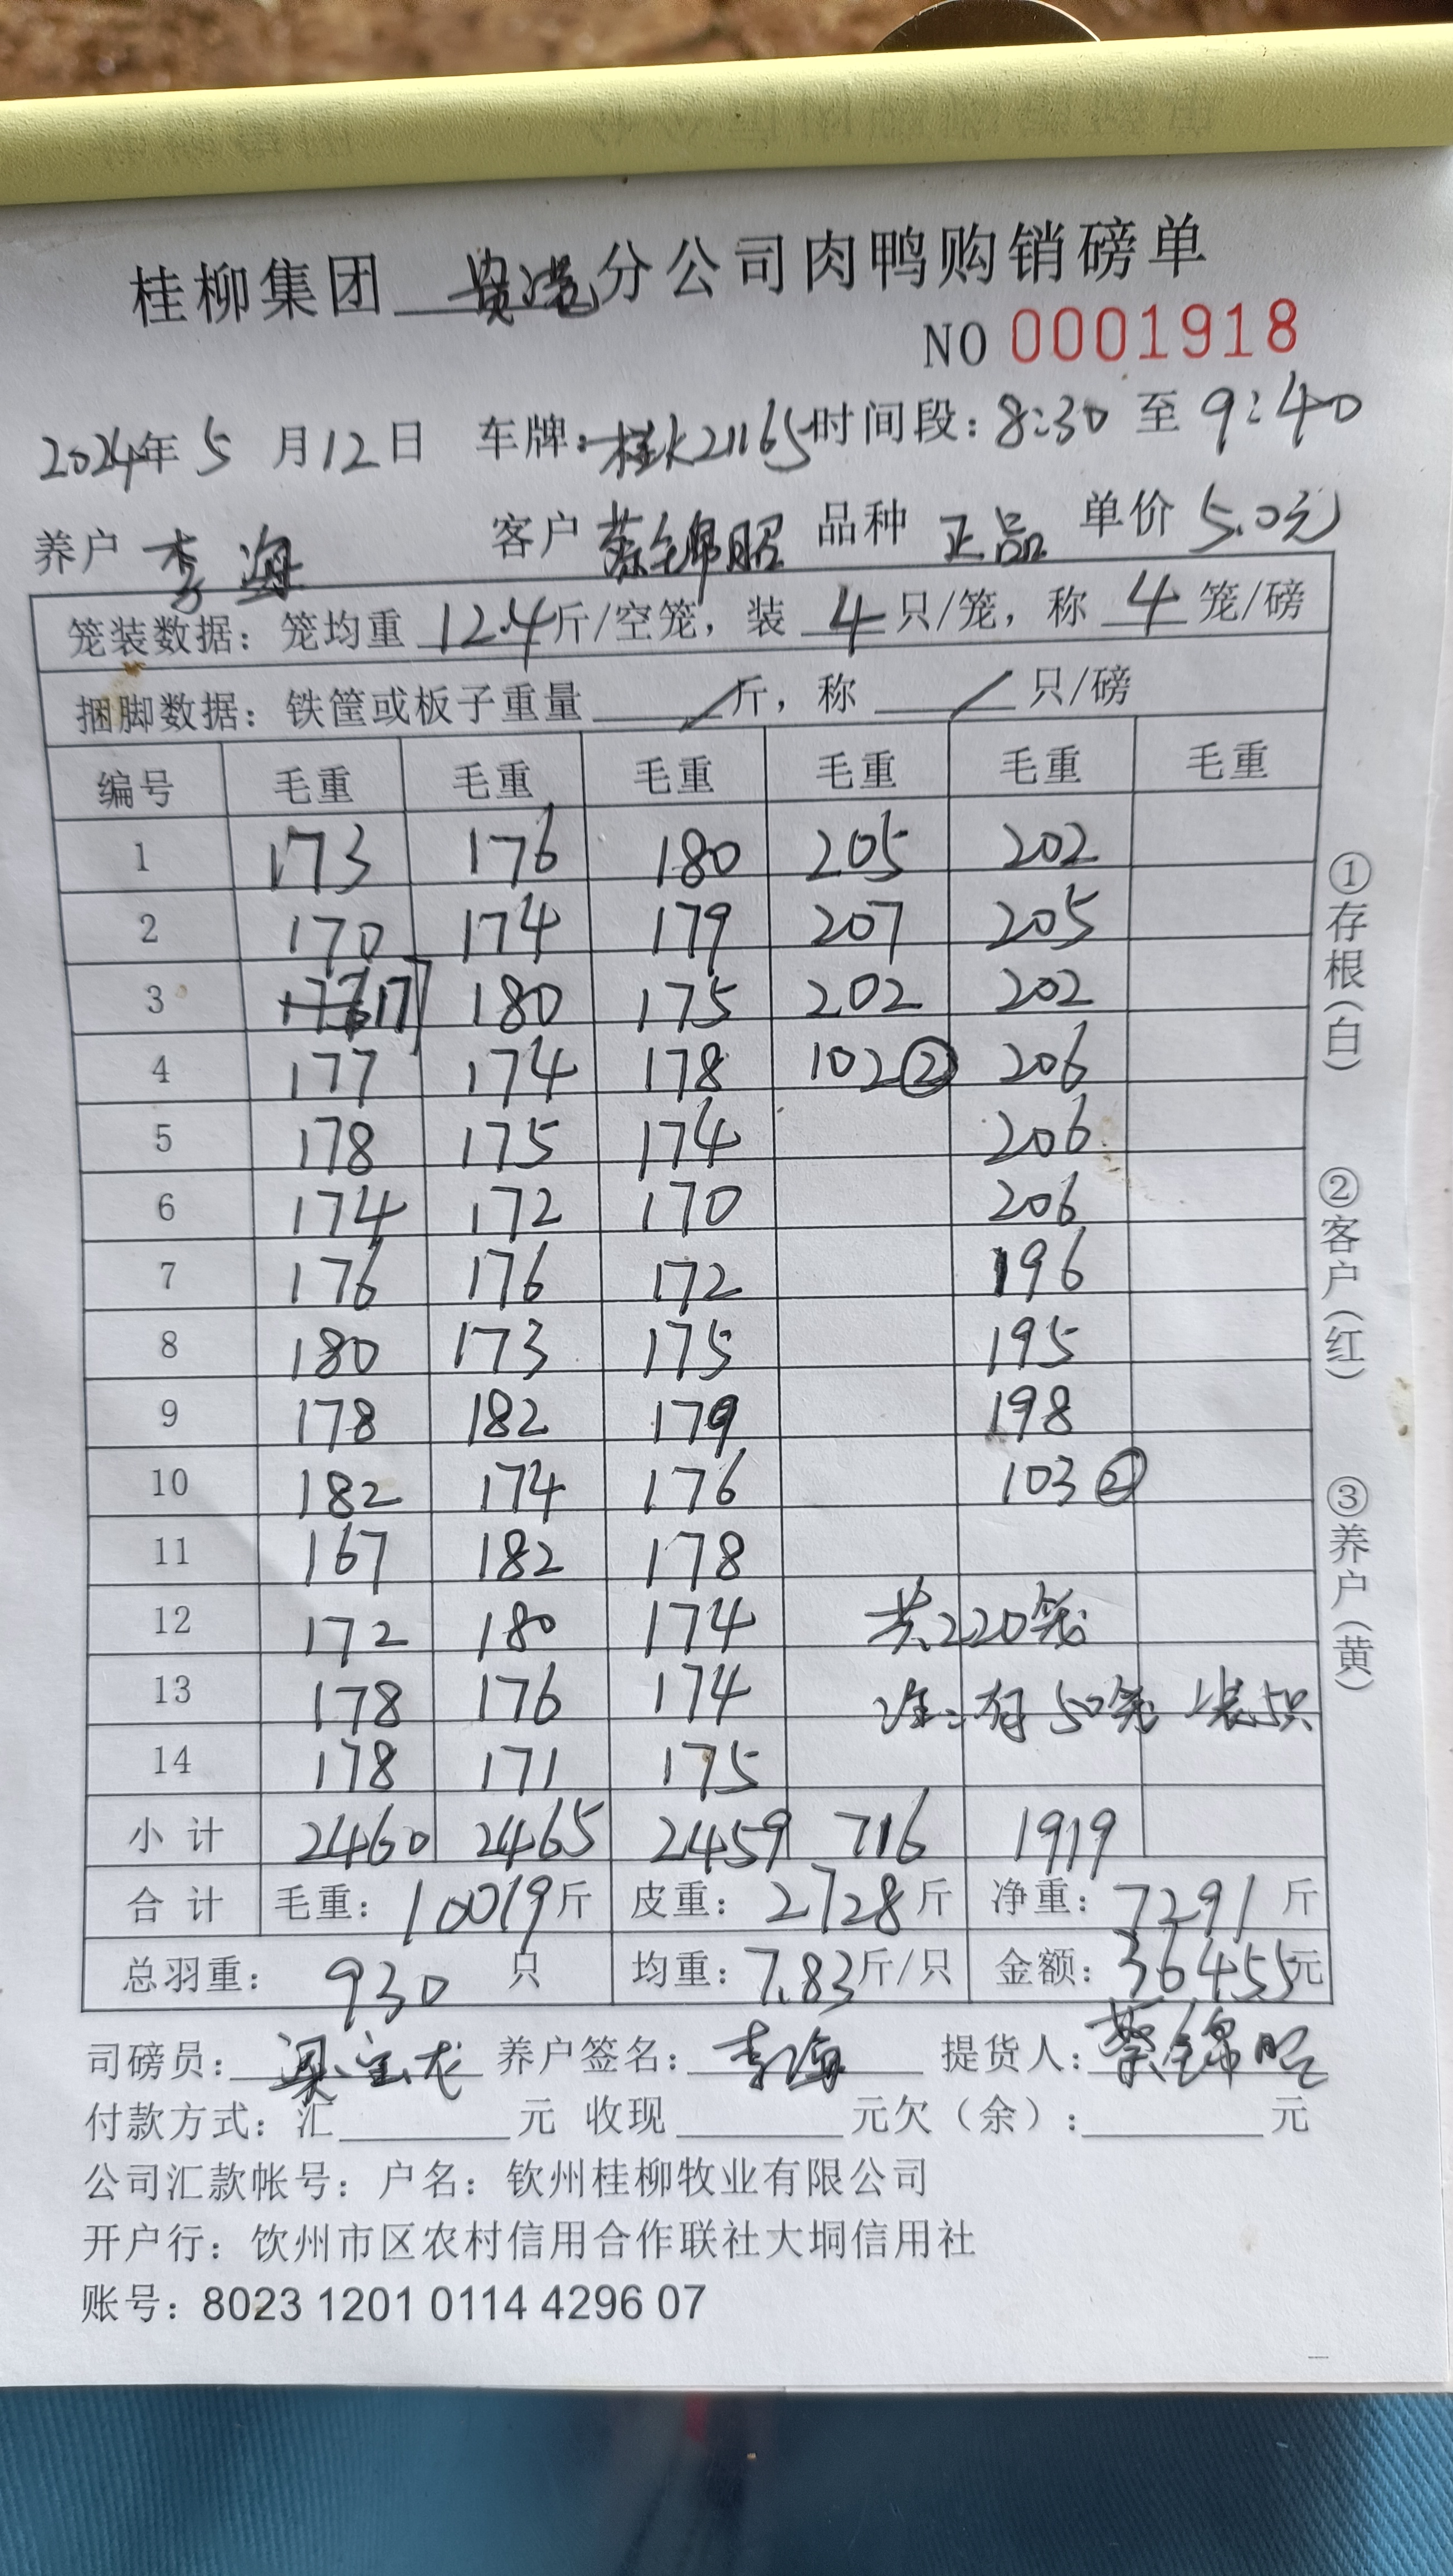 桂柳集团 贵港 分公司肉鸭购销磅单
NO 0001918
2024年 5 月 12 日 车牌: 桂K21165 时间段: 8:30 至 9:40
养户 李海 客户 蔡锦昭 品种 正品 单价 5.0元
笼装数据: 笼均重 12.4 斤/空笼, 装 4 只/笼, 称 4 笼/磅
捆脚数据: 铁筐或板子重量 / 斤, 称 / 只/磅
编号 毛重 毛重 毛重 毛重 毛重 毛重
1 173 176 180 205 202
2 170 174 179 207 205
3 177 180 175 202 202
4 177 174 178 102② 206
5 178 175 174 206
6 174 172 170 206
7 176 176 172 196
8 180 173 175 195
9 178 182 179 198
10 182 174 176 103②
11 167 182 178
12 172 180 174 共220笼
13 178 176 174 注:有50笼装5只
14 178 171 175
小计 2460 2465 2459 716 1919
合计 毛重: 10019 斤 皮重: 2728 斤 净重: 7291 斤
总羽重: 930 只 均重: 7.83 斤/只 金额: 36455 元
司磅员: 梁宝龙 养户签名: 李海 提货人: 蔡锦昭
付款方式: 汇 元 收现 元欠(余): 元
公司汇款帐号: 户名: 钦州桂柳牧业有限公司
开户行: 饮州市区农村信用合作联社大垌信用社
账号: 8023 1201 0114 4296 07
①存根(白) ②客户(红) ③养户(黄)